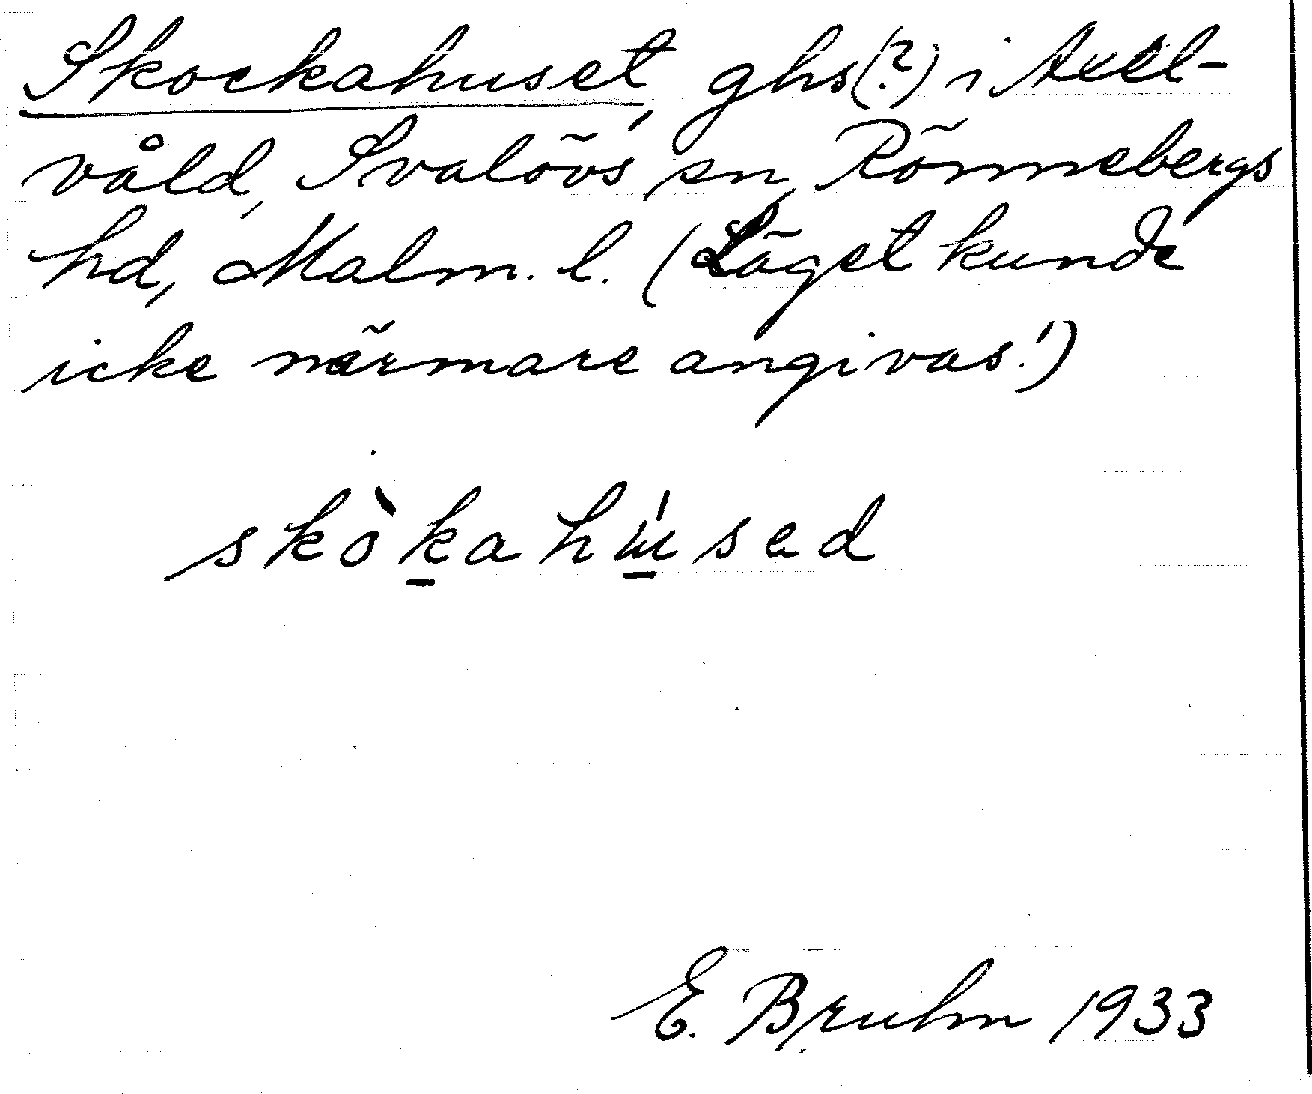 Skockahuset, ghs(?) i Axel-
våld, Svalövs sn, Rönnebergs
hd, Malm. l. (Läget kunde
icke närmare angivas!)
skòkahúsed
E. Bruhn 1933